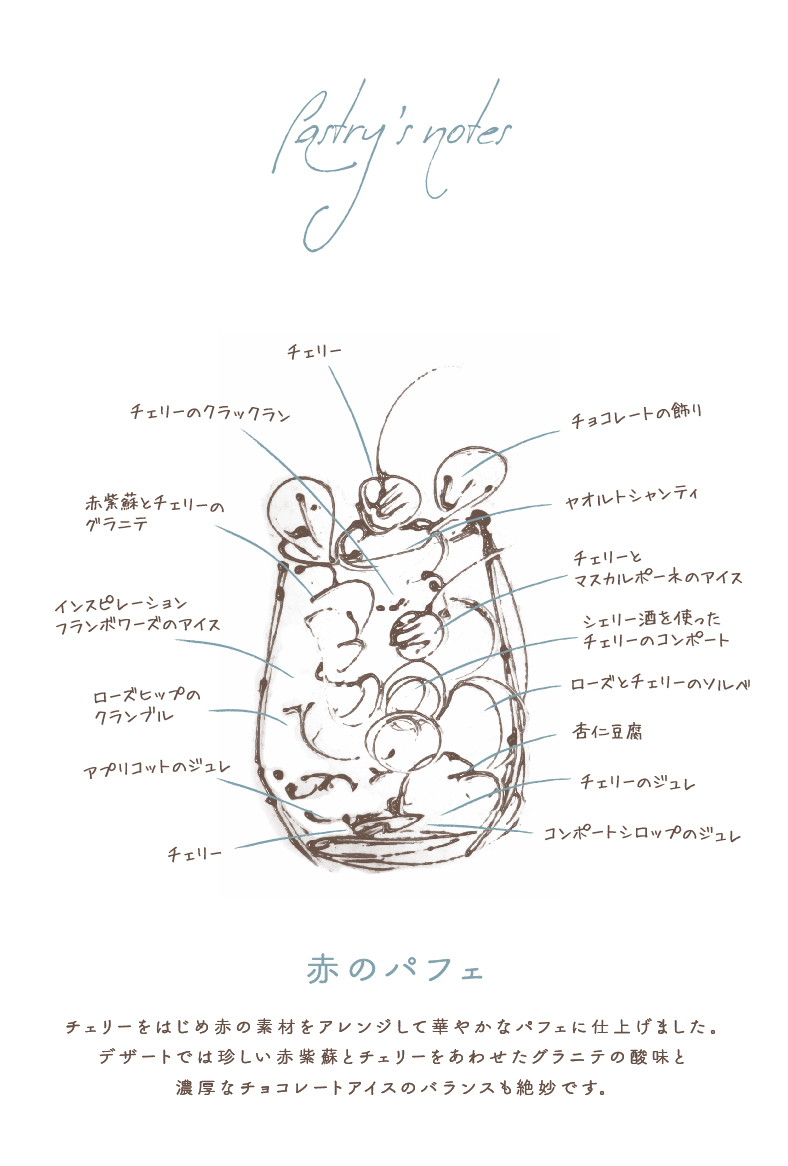 Pastry's notes
チェリー
チェリーのクラックラン
チョコレートの飾り
赤紫蘇とチェリーの
グラニテ
ヤオルトシャンティ
チェリーと
マスカルポーネのアイス
インスピレーション
フランボワーズのアイス
シェリー酒を使った
チェリーのコンポート
ローズヒップの
クランブル
ローズとチェリーのソルベ
杏仁豆腐
アプリコットのジュレ
チェリーのジュレ
チェリー
コンポートシロップのジュレ
赤のパフェ
チェリーをはじめ赤の素材をアレンジして華やかなパフェに仕上げました。
デザートでは珍しい赤紫蘇とチェリーをあわせたグラニテの酸味と
濃厚なチョコレートアイスのバランスも絶妙です。